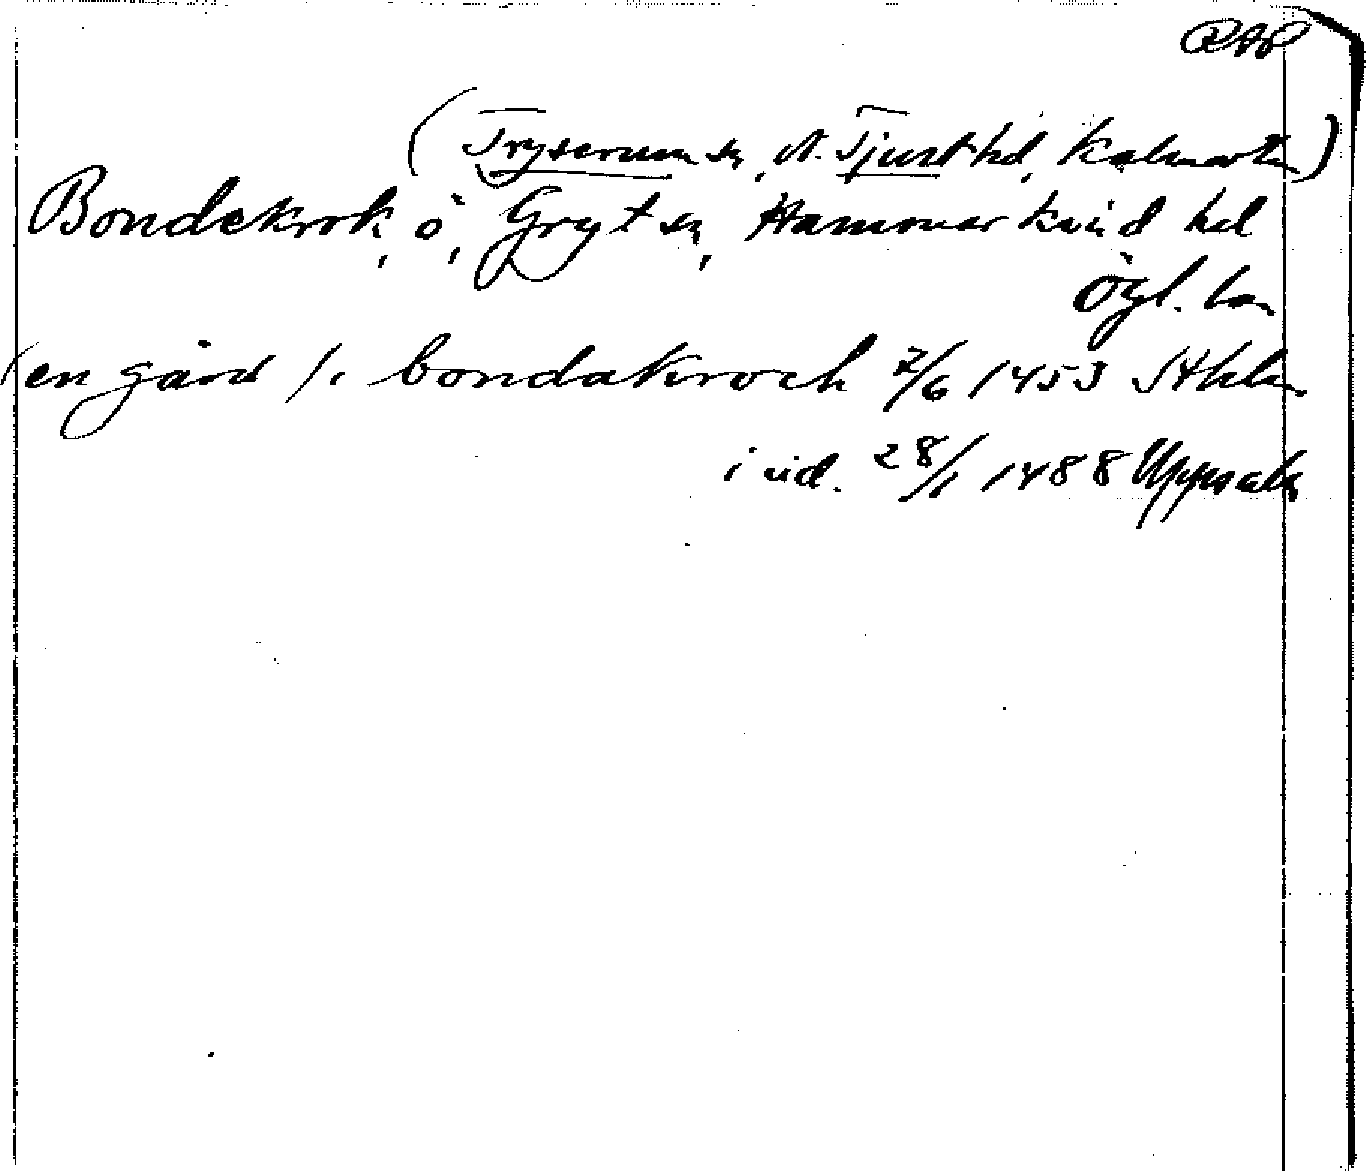 RAP
(Tryserum sn, N. Tjust hd, Kalmar län)
Bondekrok, ö, Gryt sn, Hammarkind hd
Ögl. län
(en gård) i bondakroch 2/6 1453 Sthlm
i vid. 28/1 1488 Uppsala